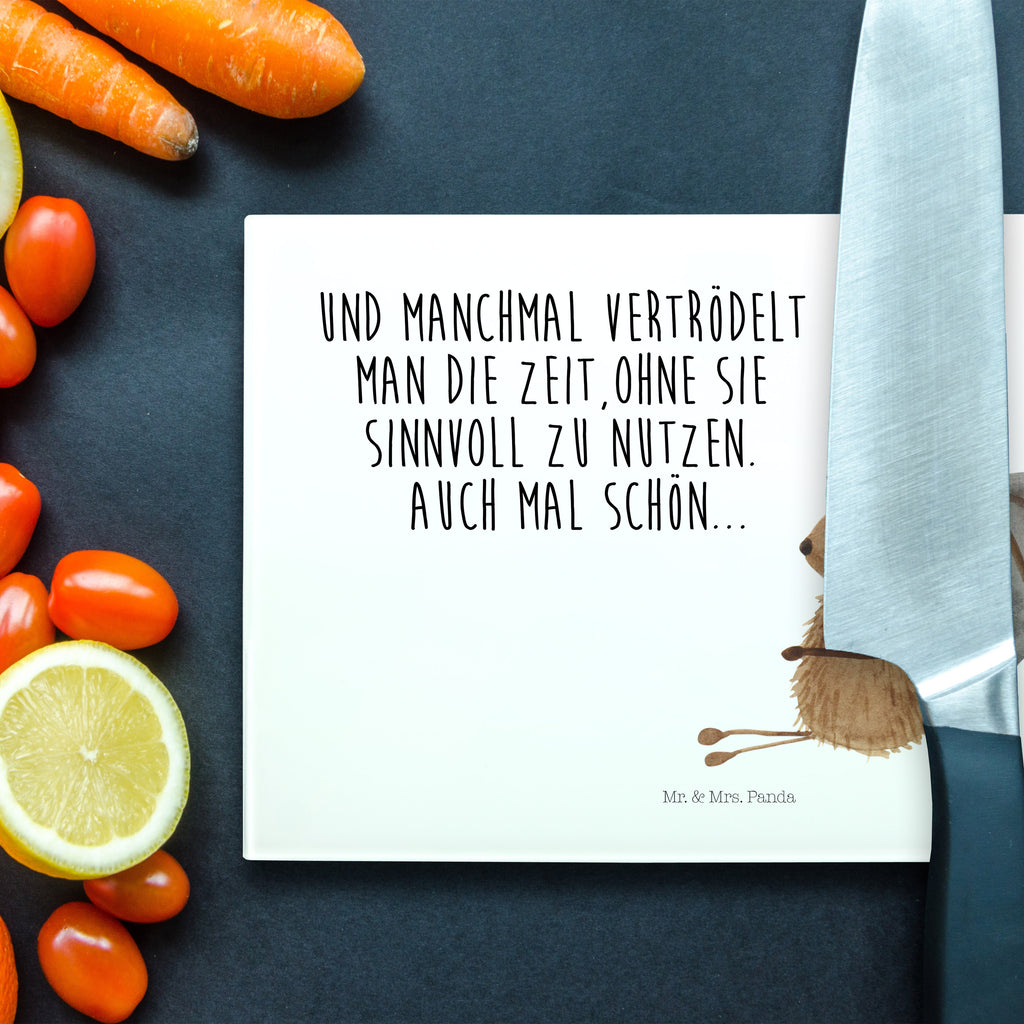 UND MANCHMAL VERTRÖDELT
MAN DIE ZEIT,OHNE SIE
SINNVOLL ZU NUTZEN.
AUCH MAL SCHÖN...
Mr. & Mrs. Panda